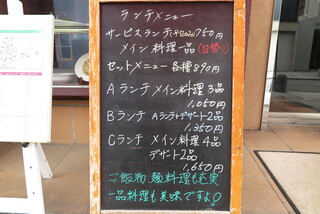 ランチメニュー
サービスランチ(平日のみ)750円
メイン料理一品(日替り)
セットメニュー 各種890円
Aランチ メイン料理3品
1,050円
Bランチ Aランチ+デザート2品
1,350円
Cランチ メイン料理4品
デザート2品
1,650円
ご飯物 麺料理も充実
一品料理も美味ですよ!